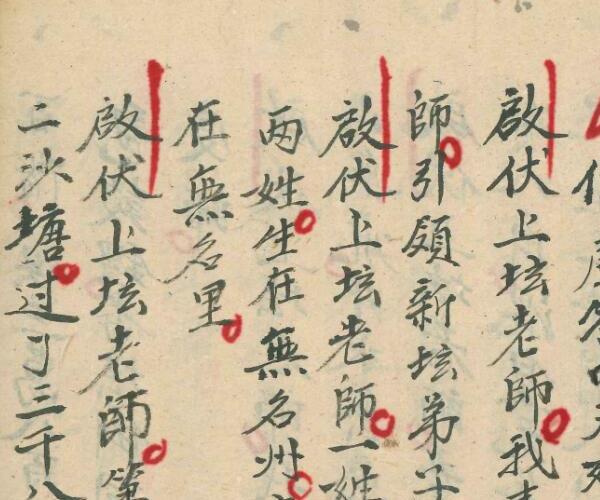 啟伏上坛老師我
師引領新坛弟子
啟伏上坛老師一姓
両姓生在無名州
在無名里
啟伏上坛老師第
二沙塘过了三千八